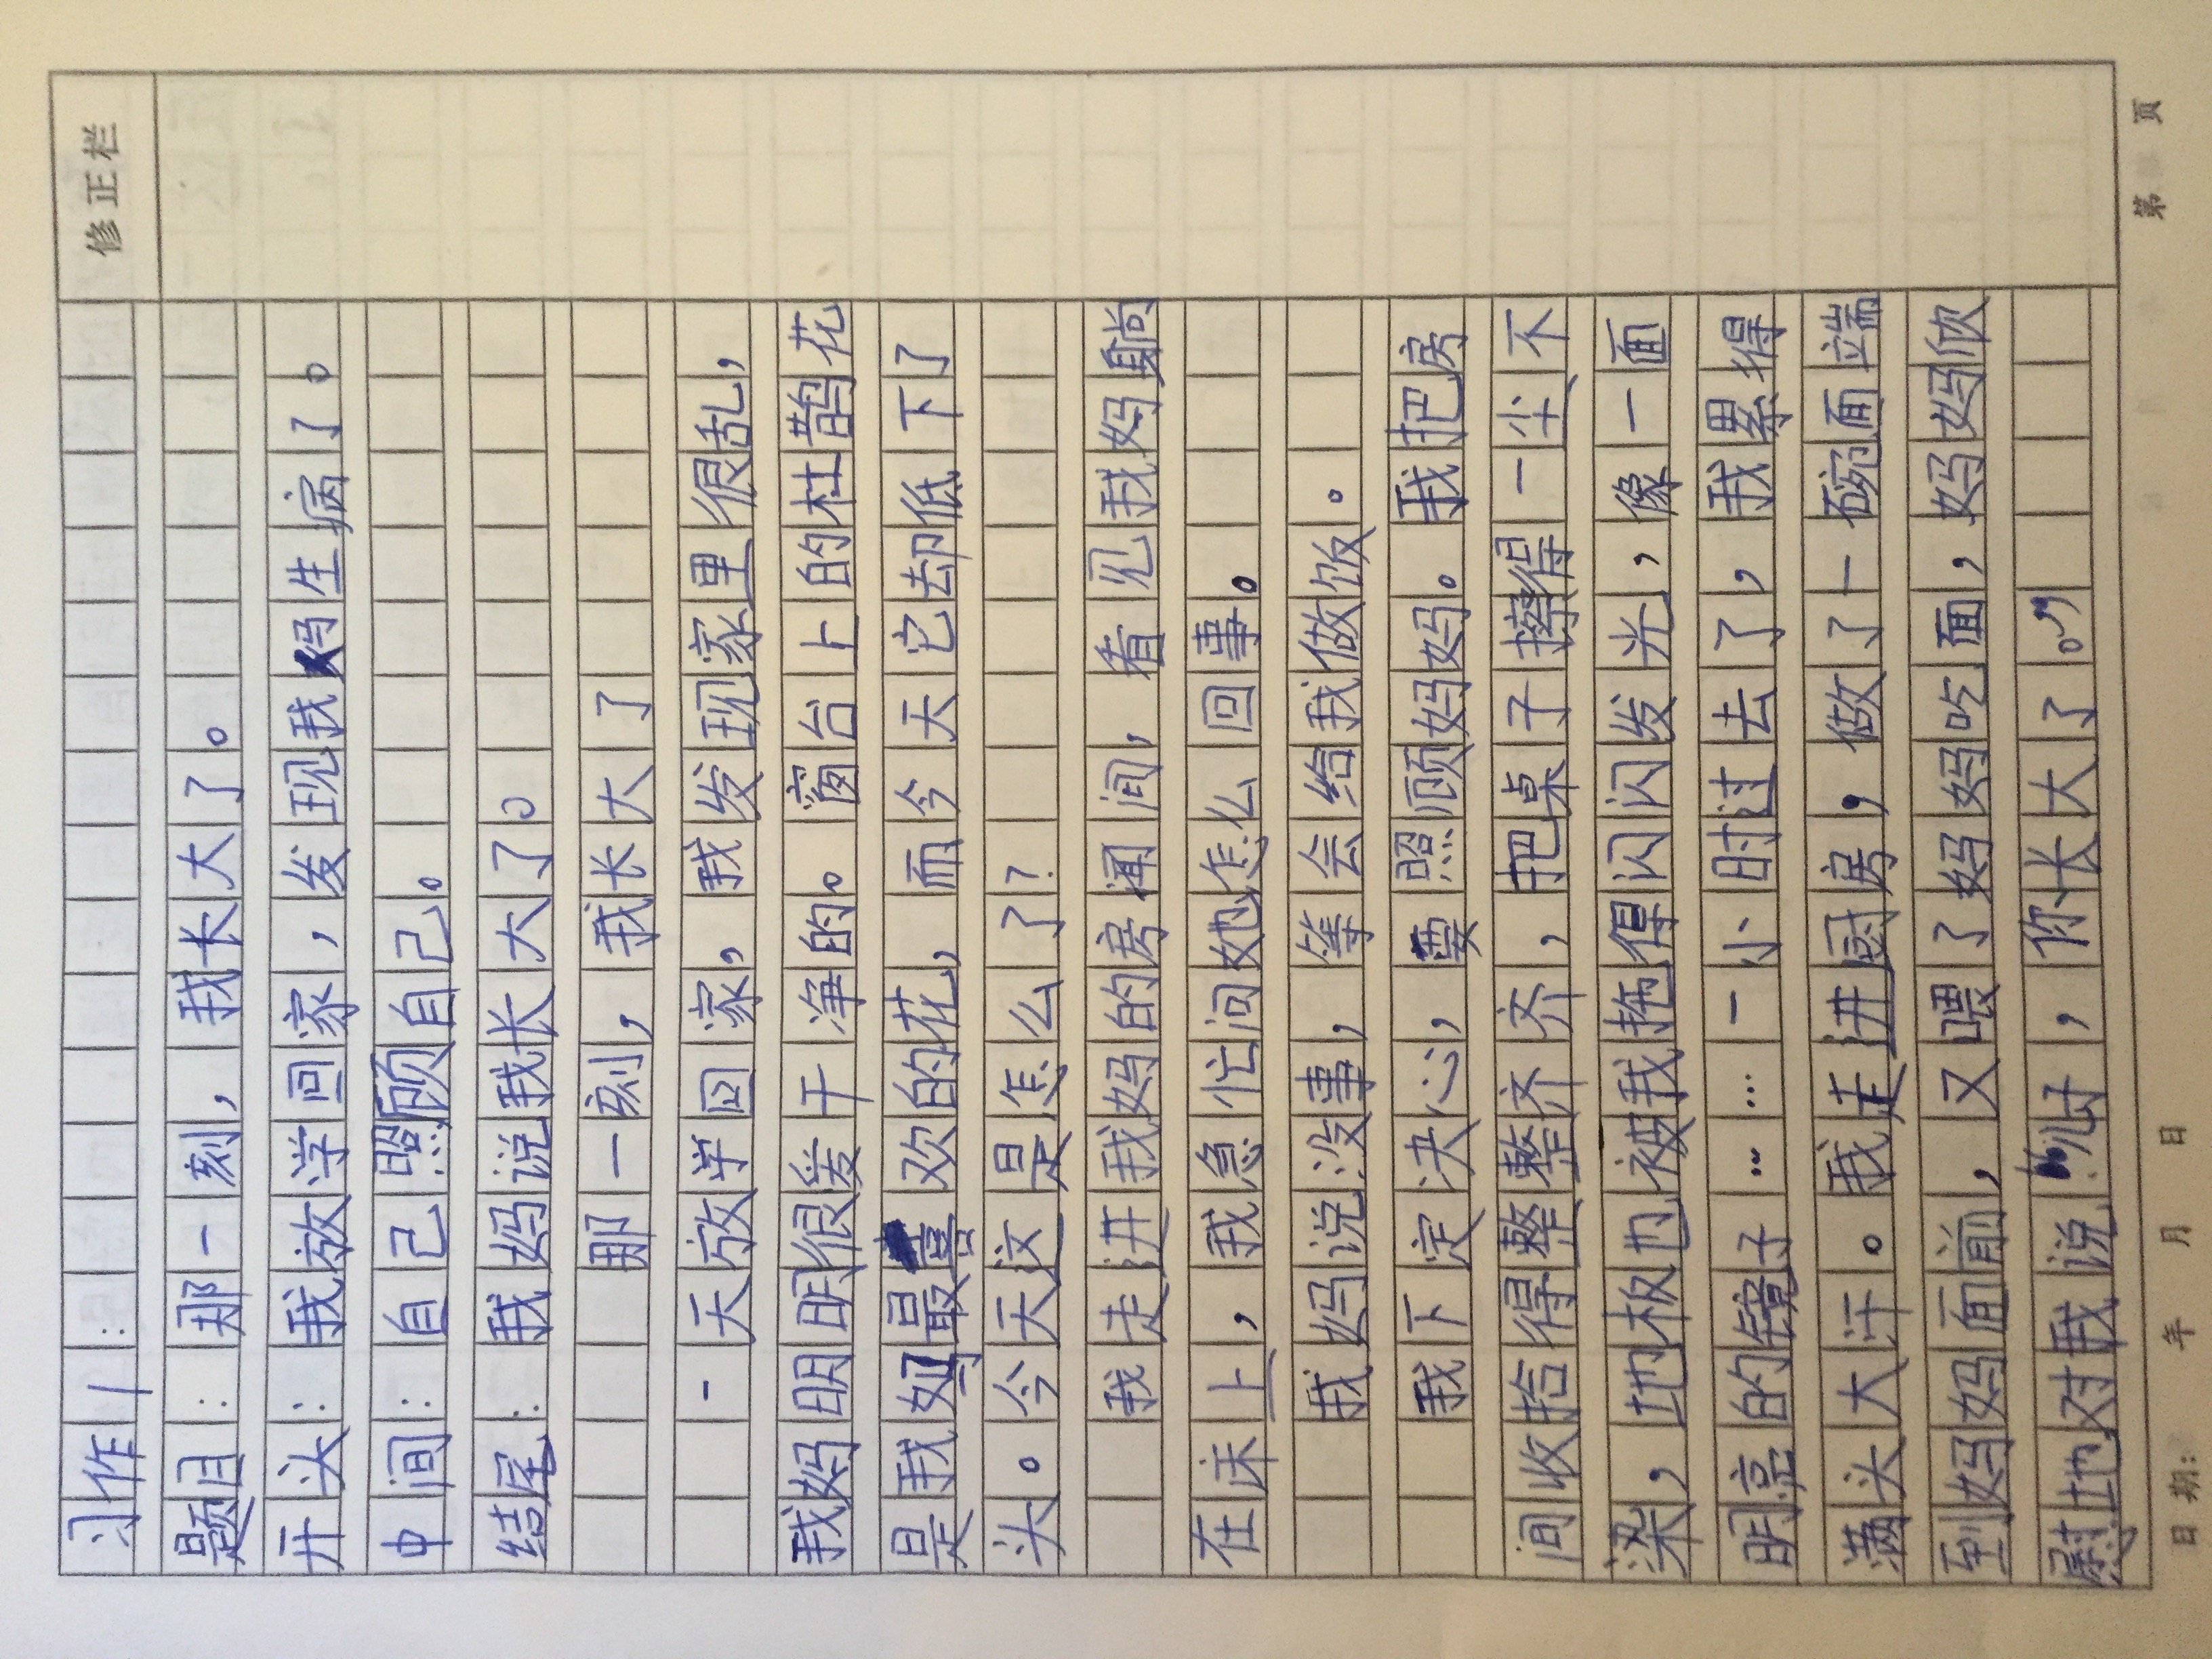 修正栏
习作1:
题目:那一刻,我长大了。
开头:我放学回家,发现我妈生病了。
中间:自己照顾自己。
结尾:我妈说我长大了。
那一刻,我长大了
一天放学回家,我发现家里很乱,
我妈明明很爱干净的。窗台上的杜鹃花
是我妈最喜欢的花,而今天它却低下了
头。今天这是怎么了?
我走进我妈的房间,看见我妈躺
在床上,我急忙问她怎么回事。
我妈说没事,等会给我做饭。
我下定决心,要照顾妈妈。我把房
间收拾得整整齐齐,把桌子擦得一尘不
染,地板也被我拖得闪闪发光,像一面
明亮的镜子……一小时过去了,我累得
满头大汗。我走进厨房,做了一碗面端
到妈妈面前,又喂了妈妈吃面,妈妈欣
慰地对我说:“儿子,你长大了。”
日期: 年 月 日 第 页